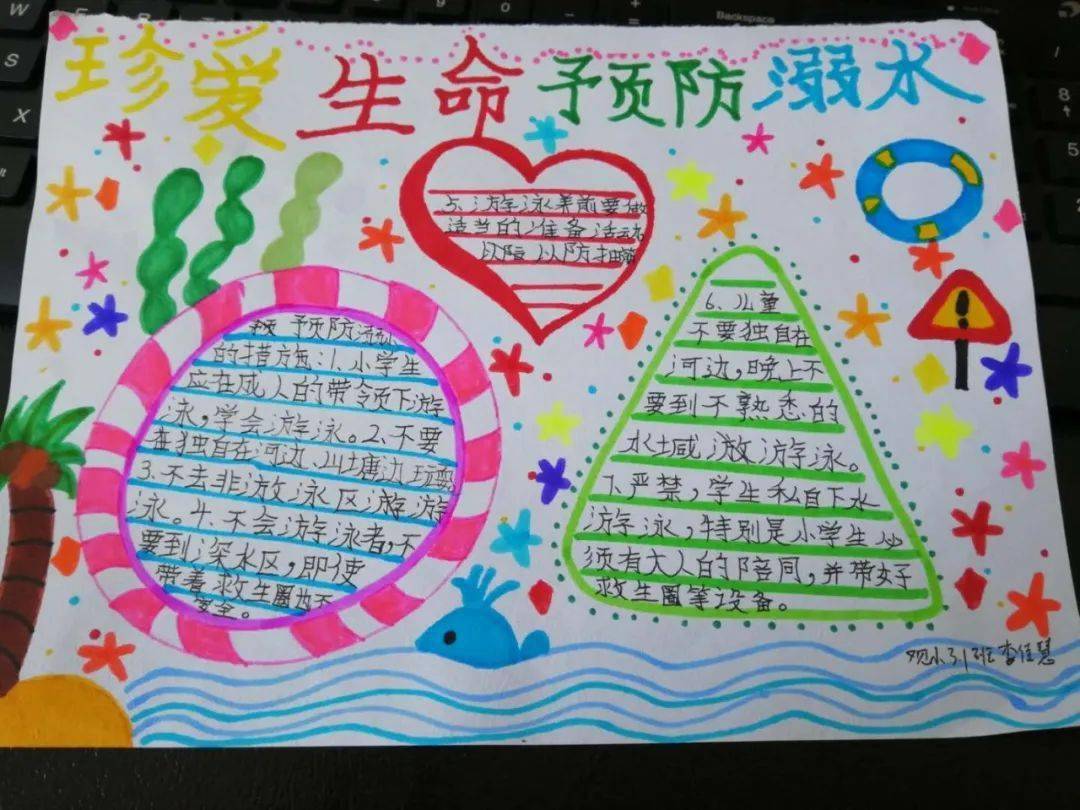 珍爱生命 预防溺水
预防溺水
的措施：1.小学生
应在成人的带领下游
泳，学会游泳。2.不要
在独自在河边、山塘边玩耍
3.不去非游泳区游游
泳。4.不会游泳者，不
要到深水区，即使
带着救生圈也不
安全。
5.游泳前要做
适当的准备活动
以防抽筋
6.儿童
不要独自在
河边，晚上不
要到不熟悉的
水域游泳。
7.严禁，学生私自下水
游泳，特别是小学生必
须有大人的陪同，并带好
救生圈等设备。
观小3.1班李佳慧
Backspace